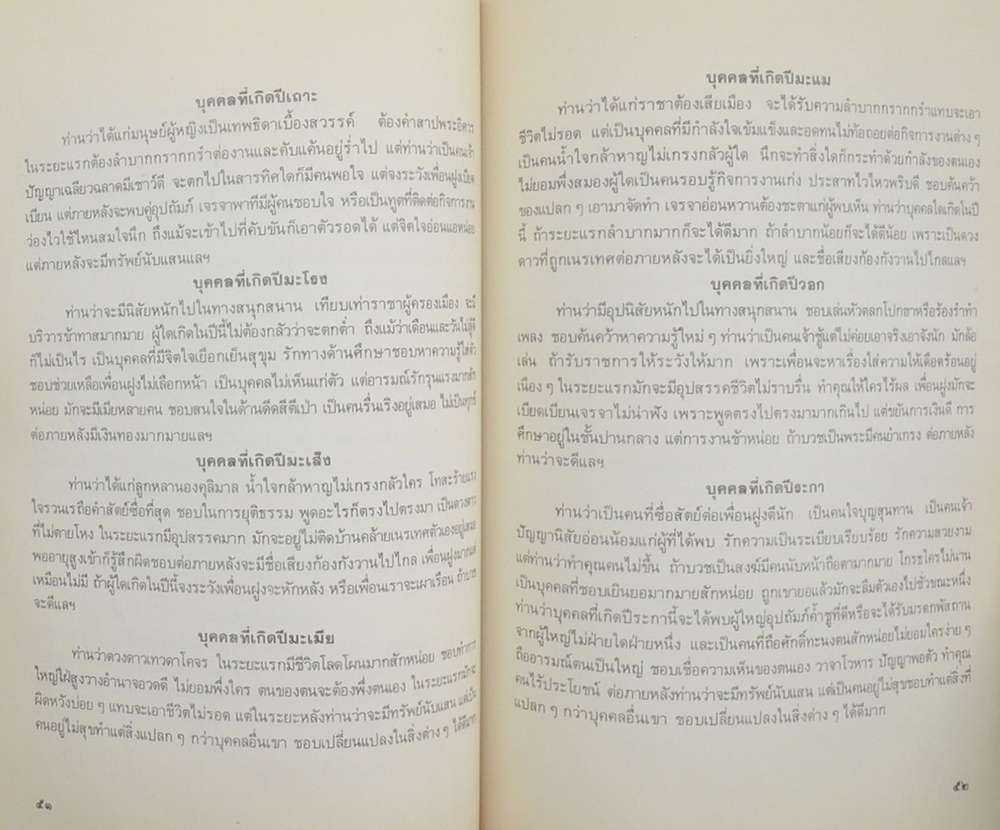 บุคคลที่เกิดปีเถาะ
ท่านว่าได้แก่มนุษย์ผู้หญิงเป็นเทพธิดาเบื้องสวรรค์ ต้องคำสาปพระอิศวร
ในระยะแรกต้องลำบากกรากกรำต่องานและคับแค้นอยู่ร่ำไป แต่ท่านว่าเป็นคนเจ้า
ปัญญาเฉลียวฉลาดมีเชาว์ดี จะตกไปในสารทิศใดก็มีคนพอใจ แต่จงระวังเพื่อนฝูงเบียด
เบียน แต่ภายหลังจะพบคู่อุปถัมภ์ เจรจาพาทีมีผู้คนชอบใจ หรือเป็นทูตที่ติดต่อกิจการงาน
ว่องไวใช้ไหนสมใจนึก ถึงแม้จะเข้าไปที่คับขันก็เอาตัวรอดได้ แต่จิตใจอ่อนแอหน่อย
แต่ภายหลังจะมีทรัพย์นับแสนแลฯ
บุคคลที่เกิดปีมะโรง
ท่านว่าจะมีนิสัยหนักไปในทางสนุกสนาน เทียบเท่าราชาผู้ครองเมือง จะมี
บริวารข้าทาสมากมาย ผู้ใดเกิดในปีนี้ไม่ต้องกลัวว่าจะตกต่ำ ถึงแม้ว่าเดือนและวันไม่สู้ดี
ก็ไม่เป็นไร เป็นบุคคลที่มีจิตใจเยือกเย็นสุขุม รักทางด้านศึกษาชอบหาความรู้ใส่ตัว
ชอบช่วยเหลือเพื่อนฝูงไม่เลือกหน้า เป็นบุคคลไม่เห็นแก่ตัว แต่อารมณ์รักรุนแรงมากสัก
หน่อย มักจะมีเมียหลายคน ชอบสนใจในด้านดีดสีตีเป่า เป็นคนรื่นเริงอยู่เสมอ ไม่เป็นทุกข์
ต่อภายหลังมีเงินทองมากมายแลฯ
บุคคลที่เกิดปีมะเส็ง
ท่านว่าได้แก่ลูกหลานองคุลิมาล น้ำใจกล้าหาญไม่เกรงกลัวใคร โทสะร้ายแรง
ใจรวนเรถือคำสัตย์ซื่อที่สุด ชอบในการยุติธรรม พูดอะไรก็ตรงไปตรงมา เป็นดวงดาว
ที่ไม่ตายโหง ในระยะแรกมีอุปสรรคมาก มักจะอยู่ไม่ติดบ้านคล้ายเนรเทศตัวเองอยู่เสมอ
พออายุสูงเข้าก็รู้สึกผิดชอบต่อภายหลังจะมีชื่อเสียงก้องกังวานไปไกล เพื่อนฝูงมากแต่
เหมือนไม่มี ถ้าผู้ใดเกิดในปีนี้จงระวังเพื่อนฝูงจะหักหลัง หรือเพื่อนเราจะเผาเรือน ถ้าบวช
จะดีแลฯ
บุคคลที่เกิดปีมะเมีย
ท่านว่าดวงดาวเทวดาโคจร ในระยะแรกมีชีวิตโลดโผนมากสักหน่อย ชอบทำการ
ใหญ่ใฝ่สูงวางอำนาจอวดดี ไม่ยอมพึ่งใคร ตนของตนจะต้องพึ่งตนเอง ในระยะแรกมักจะ
ผิดหวังบ่อย ๆ แทบจะเอาชีวิตไม่รอด แต่ในระยะหลังท่านว่าจะมีทรัพย์นับแสน แต่เป็น
คนอยู่ไม่สุขทำแต่สิ่งแปลก ๆ กว่าบุคคลอื่นเขา ชอบเปลี่ยนแปลงในสิ่งต่าง ๆ ได้ดีมาก
๕๑
บุคคลที่เกิดปีมะแม
ท่านว่าได้แก่ราชาต้องเสียเมือง จะได้รับความลำบากกรากกรำแทบจะเอา
ชีวิตไม่รอด แต่เป็นบุคคลที่มีกำลังใจเข้มแข็งและอดทนไม่ท้อถอยต่อกิจการงานต่าง ๆ
เป็นคนน้ำใจกล้าหาญไม่เกรงกลัวผู้ใด นึกจะทำสิ่งใดก็กระทำด้วยกำลังของตนเอง
ไม่ยอมพึ่งสมองผู้ใดเป็นคนรอบรู้กิจการงานเก่ง ประสาทไวไหวพริบดี ชอบค้นคว้า
ของแปลก ๆ เอามาจัดทำ เจรจาอ่อนหวานต้องชะตาแก่ผู้พบเห็น ท่านว่าบุคคลใดเกิดในปี
นี้ ถ้าระยะแรกลำบากมากก็จะได้ดีมาก ถ้าลำบากน้อยก็จะได้ดีน้อย เพราะเป็นดวง
ดาวที่ถูกเนรเทศต่อภายหลังจะได้เป็นยิ่งใหญ่ และชื่อเสียงก้องกังวานไปไกลแลฯ
บุคคลที่เกิดปีวอก
ท่านว่ามีอุปนิสัยหนักไปในทางสนุกสนาน ชอบเล่นหัวตลกโปกฮาหรือร้องรำทำ
เพลง ชอบค้นคว้าหาความรู้ใหม่ ๆ ท่านว่าเป็นคนเจ้าชู้แต่ไม่ค่อยเอาจริงเอาจังนัก มักล้อ
เล่น ถ้ารับราชการให้ระวังให้มาก เพราะเพื่อนจะหาเรื่องใส่ความให้เดือดร้อนอยู่
เนือง ๆ ในระยะแรกมักจะมีอุปสรรคชีวิตไม่ราบรื่น ทำคุณให้ใครไร้ผล เพื่อนฝูงมักจะ
เบียดเบียนเจรจาไม่น่าฟัง เพราะพูดตรงไปตรงมามากเกินไป แต่ขยันการเงินดี การ
ศึกษาอยู่ในชั้นปานกลาง แต่การงานช้าหน่อย ถ้าบวชเป็นพระมีคนยำเกรง ต่อภายหลัง
ท่านว่าจะดีแลฯ
บุคคลที่เกิดปีระกา
ท่านว่าเป็นคนที่ซื่อสัตย์ต่อเพื่อนฝูงดีนัก เป็นคนใจบุญสุนทาน เป็นคนเจ้า
ปัญญานิสัยอ่อนน้อมแก่ผู้ที่ได้พบ รักความเป็นระเบียบเรียบร้อย รักความสวยงาม
แต่ท่านว่าทำคุณคนไม่ขึ้น ถ้าบวชเป็นสงฆ์มีคนนับหน้าถือตามากมาย โกรธใครไม่นาน
เป็นบุคคลที่ชอบเยินยอมากมายสักหน่อย ถูกเขายอแล้วมักจะลืมตัวเองไปชั่วขณะหนึ่ง
ท่านว่าบุคคลที่เกิดปีระกานี้จะได้พบผู้ใหญ่อุปถัมภ์ค้ำชูที่ดีหรือจะได้รับมรดกพัสถาน
จากผู้ใหญ่ไม่ฝ่ายใดฝ่ายหนึ่ง และเป็นคนที่ถือศักดิ์ทะนงตนสักหน่อยไม่ยอมใครง่าย ๆ
ถืออารมณ์ตนเป็นใหญ่ ชอบเชื่อความเห็นของตนเอง วาจาโวหาร ปัญญาพอตัว ทำคุณ
คนไร้ประโยชน์ ต่อภายหลังท่านว่าจะมีทรัพย์นับแสน แต่เป็นคนอยู่ไม่สุขชอบทำแต่สิ่งที่
แปลก ๆ กว่าบุคคลอื่นเขา ชอบเปลี่ยนแปลงในสิ่งต่าง ๆ ได้ดีมาก
๕๒